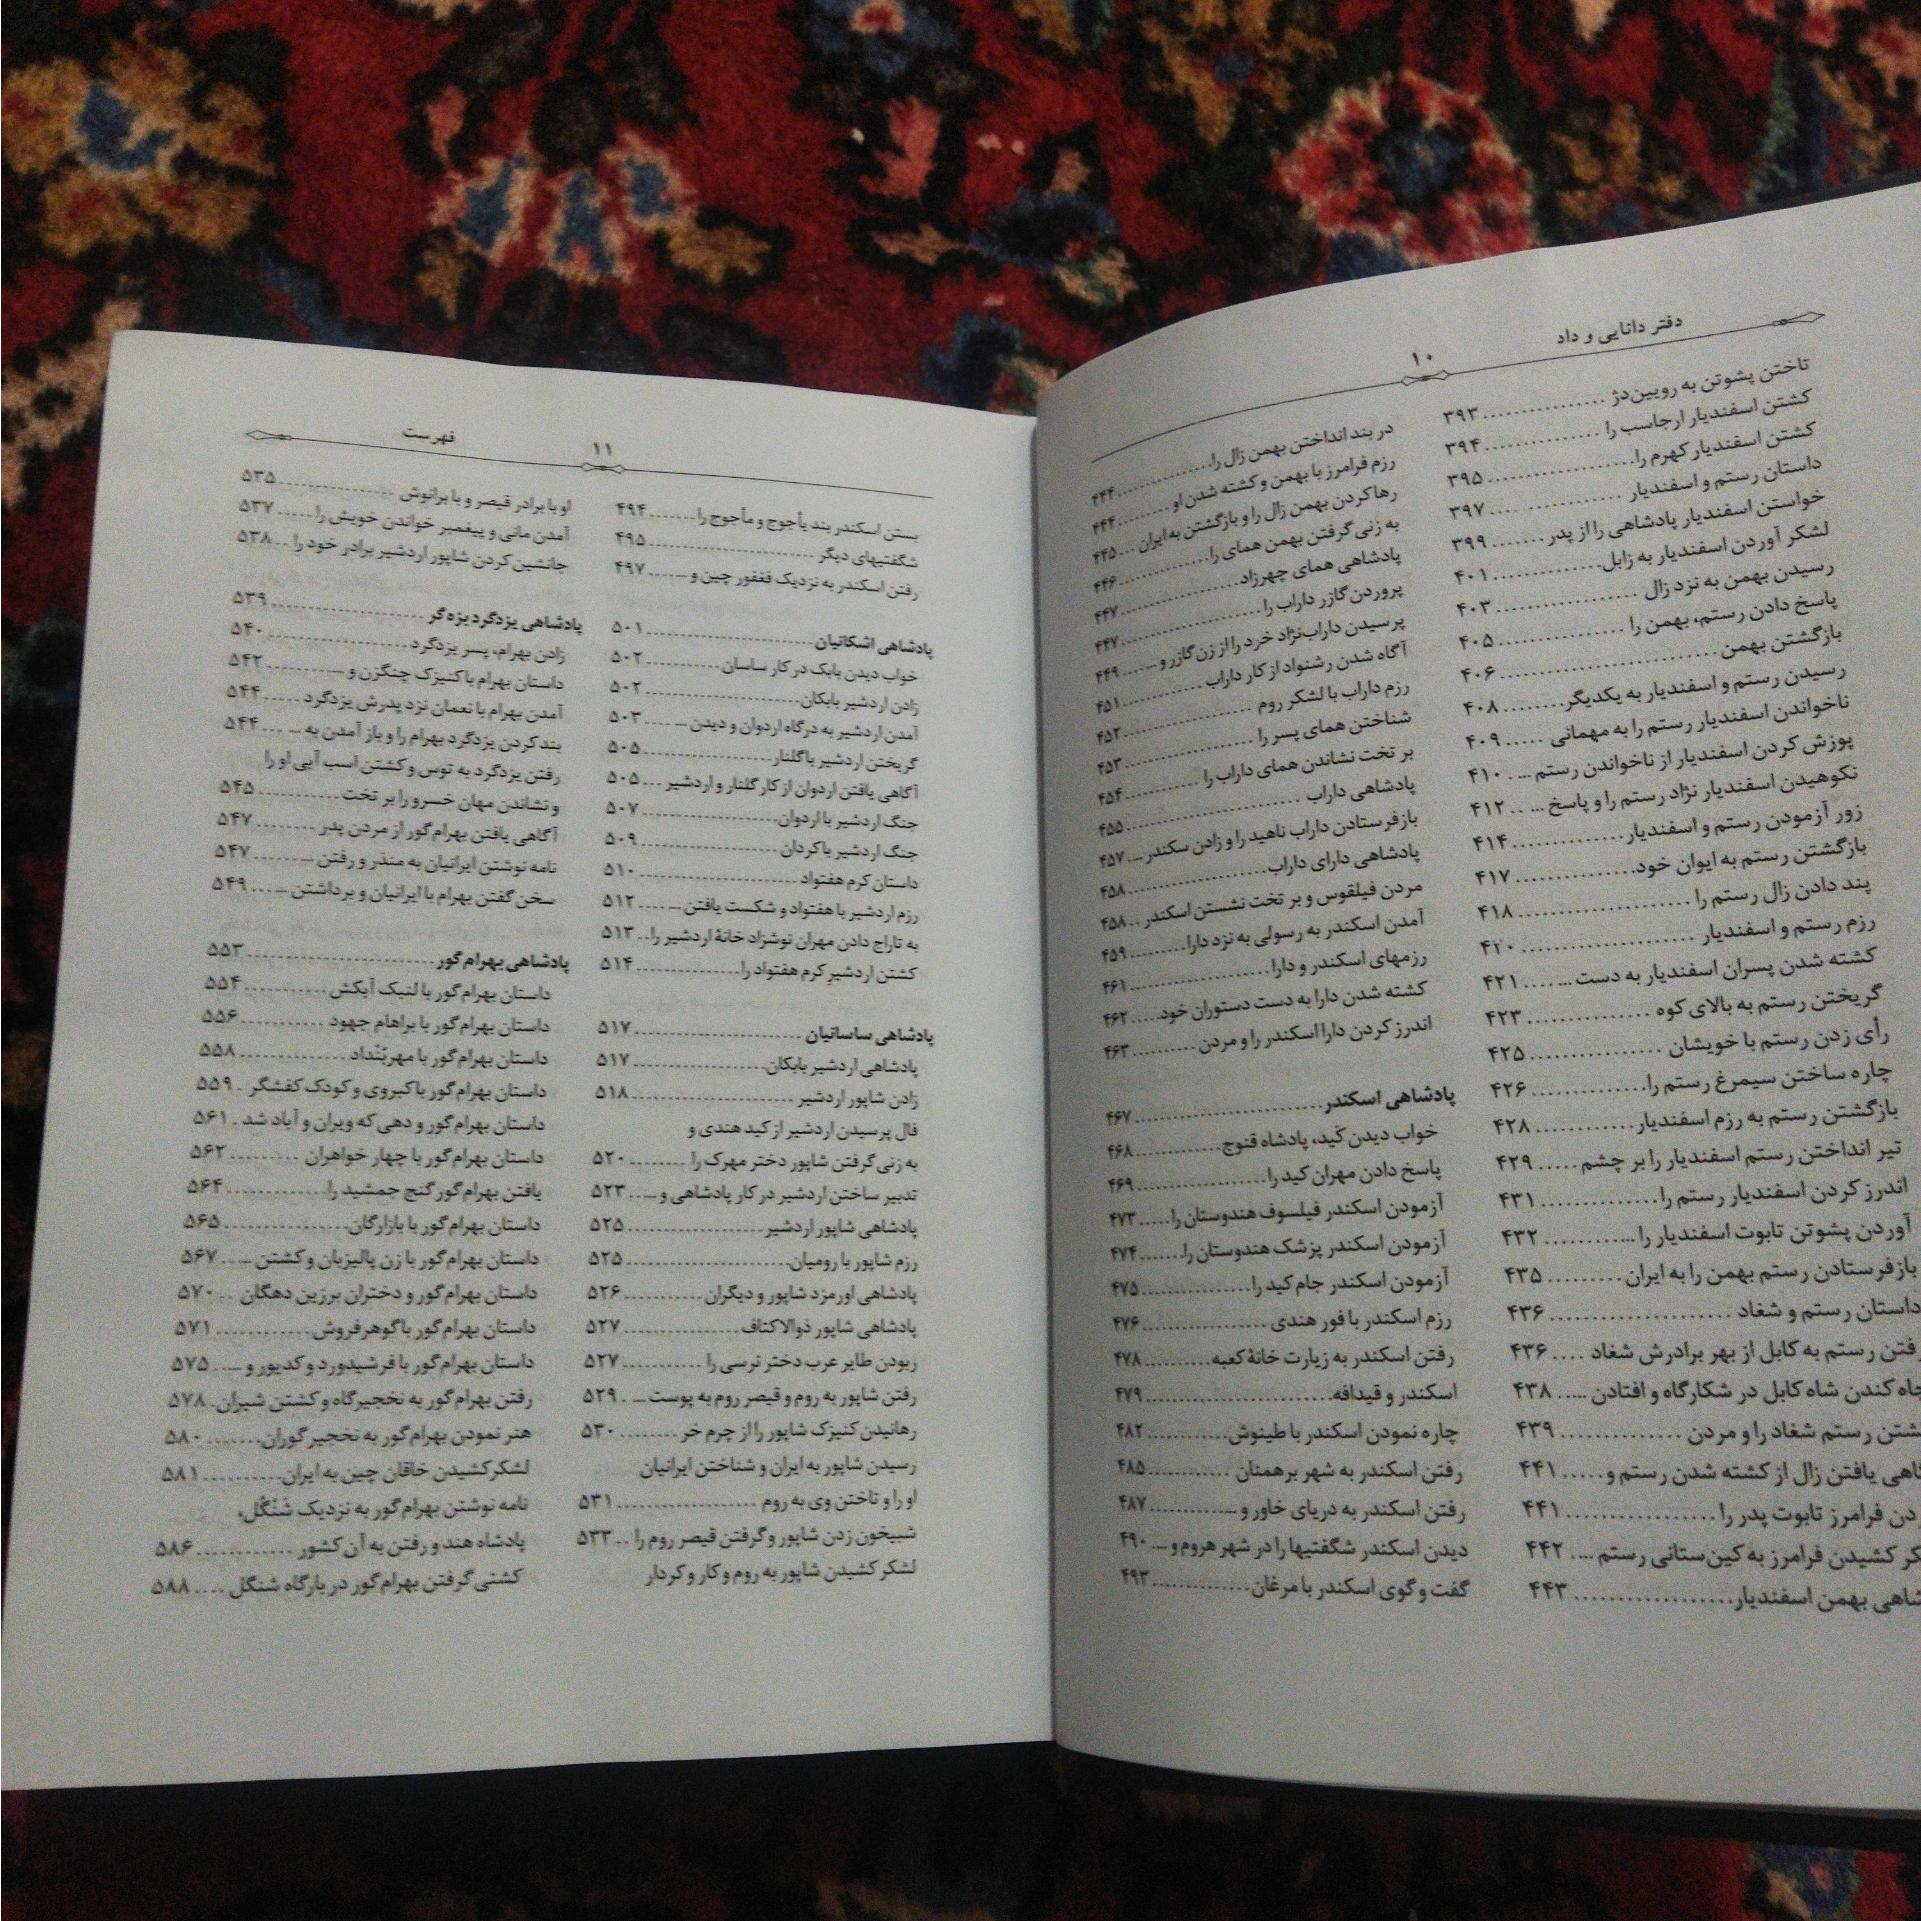 دفتر دانایی و داد
۱۰
تاختن پشوتن به رویین‌دژ ............... ۳۹۳
کشتن اسفندیار ارجاسب را ............... ۳۹۴
کشتن اسفندیار کهرم را ............... ۳۹۵
داستان رستم و اسفندیار ............... ۳۹۷
خواستن اسفندیار پادشاهی را از پدر ........ ۳۹۹
لشکر آوردن اسفندیار به زابل ............... ۴۰۱
رسیدن بهمن به نزد زال ............... ۴۰۳
پاسخ دادن رستم، بهمن را ............... ۴۰۵
بازگشتن بهمن ............... ۴۰۶
رسیدن رستم و اسفندیار به یکدیگر ........ ۴۰۸
ناخواندن اسفندیار رستم را به مهمانی ..... ۴۰۹
پوزش کردن اسفندیار از ناخواندن رستم ... . ۴۱۰
نکوهیدن اسفندیار نژاد رستم را و پاسخ ... .. ۴۱۲
زور آزمودن رستم و اسفندیار ............... ۴۱۴
بازگشتن رستم به ایوان خود ............... ۴۱۷
پند دادن زال رستم را ............... ۴۱۸
رزم رستم و اسفندیار ............... ۴۲۰
کشته شدن پسران اسفندیار به دست ... .... ۴۲۱
گریختن رستم به بالای کوه ............... ۴۲۳
رأی زدن رستم با خویشان ............... ۴۲۵
چاره ساختن سیمرغ رستم را ............... ۴۲۶
بازگشتن رستم به رزم اسفندیار ............ ۴۲۸
تیر انداختن رستم اسفندیار را بر چشم ...... ۴۲۹
اندرز کردن اسفندیار رستم را ............... ۴۳۱
آوردن پشوتن تابوت اسفندیار را ............ ۴۳۲
بازفرستادن رستم بهمن را به ایران ......... ۴۳۵
داستان رستم و شغاد ............... ۴۳۶
رفتن رستم به کابل از بهر برادرش شغاد .... ۴۳۶
چاه کندن شاه کابل در شکارگاه و افتادن ..... ۴۳۸
کشتن رستم شغاد را و مردن ............... ۴۳۹
آگاهی یافتن زال از کشته شدن رستم و ..... ۴۴۱
دن فرامرز تابوت پدر را ............... ۴۴۱
کر کشیدن فرامرز به کین‌ستانی رستم ..... ۴۴۲
شاهی بهمن اسفندیار ............... ۴۴۳
در بند انداختن بهمن زال را ............... ۴۴۴
رزم فرامرز با بهمن و کشته شدن او ......... ۴۴۴
رهاکردن بهمن زال را و بازگشتن به ایران ... ۴۴۵
به زنی گرفتن بهمن همای را ............... ۴۴۶
پادشاهی همای چهرزاد ............... ۴۴۷
پروردن گازر داراب را ............... ۴۴۷
پرسیدن داراب‌نژاد خرد را از زن گازر و ... ..... ۴۴۹
آگاه شدن رشنواد از کار داراب ............ ۴۵۱
رزم داراب با لشکر روم ............... ۴۵۲
شناختن همای پسر را ............... ۴۵۳
بر تخت نشاندن همای داراب را ............ ۴۵۴
پادشاهی داراب ............... ۴۵۵
بازفرستادن داراب ناهید را و زادن سکندر ... .. ۴۵۷
پادشاهی دارای داراب ............... ۴۵۸
مردن فیلقوس و بر تخت نشستن اسکندر .. ۴۵۸
آمدن اسکندر به رسولی به نزد دارا ......... ۴۵۹
رزمهای اسکندر و دارا ............... ۴۶۱
کشته شدن دارا به دست دستوران خود ...... ۴۶۲
اندرز کردن دارا اسکندر را و مردن .......... ۴۶۳
پادشاهی اسکندر ............... ۴۶۷
خواب دیدن کَید، پادشاه قنوج ............ ۴۶۸
پاسخ دادن مهران کید را ............... ۴۶۹
آزمودن اسکندر فیلسوف هندوستان را ..... ۴۷۳
آزمودن اسکندر پزشک هندوستان را ....... ۴۷۴
آزمودن اسکندر جام کید را ............... ۴۷۵
رزم اسکندر با فور هندی ............... ۴۷۶
رفتن اسکندر به زیارت خانهٔ کعبه .......... ۴۷۸
اسکندر و قیدافه ............... ۴۷۹
چاره نمودن اسکندر با طینوش ............ ۴۸۲
رفتن اسکندر به شهر برهمنان ............ ۴۸۵
رفتن اسکندر به دریای خاور و ... ............ ۴۸۷
دیدن اسکندر شگفتیها را در شهر هروم و ... .. ۴۹۰
گفت و گوی اسکندر با مرغان ............... ۴۹۳
۱۱
فهرست
بستن اسکندر بند یأجوج و مأجوج را ....... ۴۹۴
شگفتیهای دیگر ............... ۴۹۵
رفتن اسکندر به نزدیک فغفور چین و ... ..... ۴۹۷
پادشاهی اشکانیان ............... ۵۰۱
خواب دیدن بابک در کار ساسان ............ ۵۰۲
زادن اردشیر بابکان ............... ۵۰۲
آمدن اردشیر به درگاه اردوان و دیدن ... ..... ۵۰۳
گریختن اردشیر با گلنار ............... ۵۰۵
آگاهی یافتن اردوان از کار گلنار و اردشیر ... ۵۰۵
جنگ اردشیر با اردوان ............... ۵۰۷
جنگ اردشیر با کردان ............... ۵۰۹
داستان کرم هفتواد ............... ۵۱۰
رزم اردشیر با هفتواد و شکست یافتن ... .... ۵۱۲
به تاراج دادن مهران نوشزاد خانهٔ اردشیر را .. ۵۱۳
کشتن اردشیر کرم هفتواد را ............... ۵۱۴
پادشاهی ساسانیان ............... ۵۱۷
پادشاهی اردشیر بابکان ............... ۵۱۷
زادن شاپور اردشیر ............... ۵۱۸
فال پرسیدن اردشیر از کید هندی و
به زنی گرفتن شاپور دختر مهرک را ........ ۵۲۰
تدبیر ساختن اردشیر در کار پادشاهی و ... .. ۵۲۳
پادشاهی شاپور اردشیر ............... ۵۲۵
رزم شاپور با رومیان ............... ۵۲۵
پادشاهی اورمزد شاپور و دیگران ........... ۵۲۶
پادشاهی شاپور ذوالاکتاف ............... ۵۲۷
ربودن طایر عرب دختر نرسی را ........... ۵۲۷
رفتن شاپور به روم و قیصر روم به پوست ... . ۵۲۹
رهانیدن کنیزک شاپور را از چرم خر ........ ۵۳۰
رسیدن شاپور به ایران و شناختن ایرانیان
او را و تاختن وی به روم ............... ۵۳۱
شبیخون زدن شاپور و گرفتن قیصر روم را .. ۵۳۳
لشکر کشیدن شاپور به روم و کار و کردار
او با برادر قیصر و با برانوش ............... ۵۳۵
آمدن مانی و پیغمبر خواندن خویش را ..... ۵۳۷
جانشین کردن شاپور اردشیر برادر خود را ... ۵۳۸
پادشاهی یزدگرد بزه‌گر ............... ۵۳۹
زادن بهرام، پسر یزدگرد ............... ۵۴۰
داستان بهرام با کنیزک چنگزن و ... ........ ۵۴۲
آمدن بهرام با نعمان نزد پدرش یزدگرد ..... ۵۴۴
بند کردن یزدگرد بهرام را و باز آمدن به ... ... ۵۴۴
رفتن یزدگرد به توس و کشتن اسب آبی او را
و نشاندن مهان خسرو را بر تخت ........... ۵۴۵
آگاهی یافتن بهرام گور از مردن پدر ........ ۵۴۷
نامه نوشتن ایرانیان به منذر و رفتن ... ...... ۵۴۷
سخن گفتن بهرام با ایرانیان و برداشتن ... ... ۵۴۹
پادشاهی بهرام گور ............... ۵۵۳
داستان بهرام گور با لنبک آبکش ............ ۵۵۴
داستان بهرام گور با براهام جهود ........... ۵۵۶
داستان بهرام گور با مهربنداد ............... ۵۵۸
داستان بهرام گور با کبروی و کودک کفشگر . ۵۵۹
داستان بهرام گور و دهی که ویران و آباد شد . ۵۶۱
داستان بهرام گور با چهار خواهران ......... ۵۶۲
یافتن بهرام گور گنج جمشید را ............ ۵۶۴
داستان بهرام گور با بازارگان ............... ۵۶۵
داستان بهرام گور با زن پالیزبان و کشتن ... ... ۵۶۷
داستان بهرام گور و دختران برزین دهگان .. ۵۷۰
داستان بهرام گور با گوهرفروش ............ ۵۷۱
داستان بهرام گور با فرشیدورد و کدیور و ... .. ۵۷۵
رفتن بهرام گور به نخجیرگاه و کشتن شیران . ۵۷۸
هنر نمودن بهرام گور به نخجیر گوران ....... ۵۸۰
لشکر کشیدن خاقان چین به ایران .......... ۵۸۱
نامه نوشتن بهرام گور به نزدیک شَنْگُل،
پادشاه هند و رفتن به آن کشور ............ ۵۸۶
کشتی گرفتن بهرام گور در بارگاه شنگل .... ۵۸۸